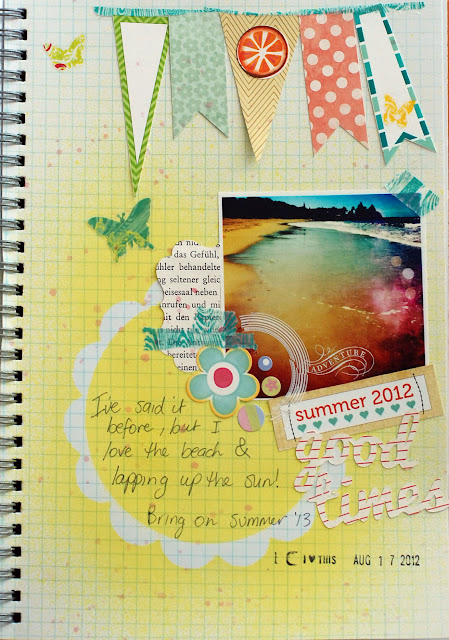 das Gefühl,
behandelte
seltener gleic
neben
nicht
bereitete
einen
ADVENTURE
summer 2012
good
times
I've said it
before, but I
love the beach &
lapping up the sun!
Bring on summer '13
I ♥ THIS AUG 17 2012